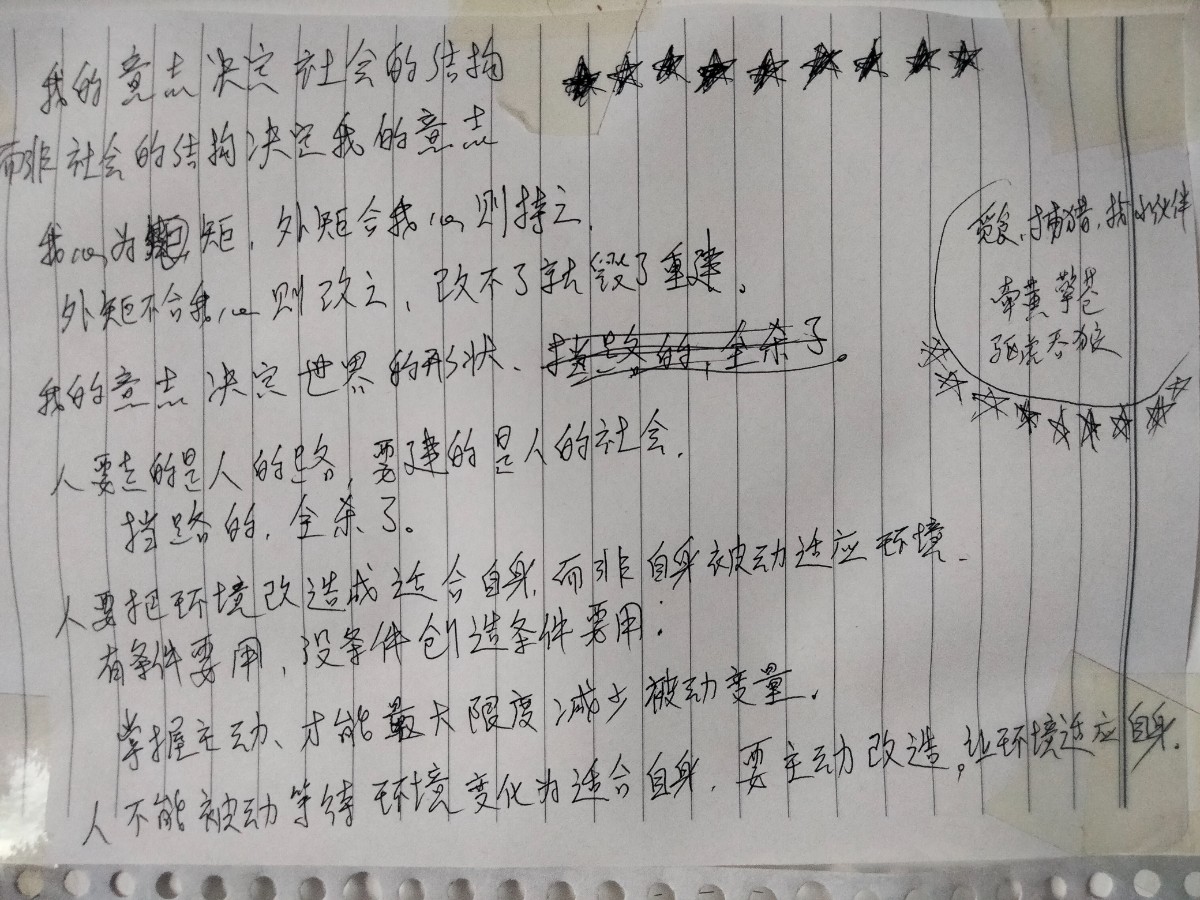 我的意志决定社会的结构
而非社会的结构决定我的意志
我心为矩，外矩合我心则持之，
外矩不合我心则改之，改不了就毁了重建。
我的意志决定世界的形状、挡路的，全杀了。
人要走的是人的路，要建的是人的社会，
挡路的，全杀了。
人要把环境改造成适合自身，而非自身被动适应环境。
有条件要用，没条件创造条件要用：
掌握主动、才能最大限度减少被动变量。
人不能被动等待环境变化为适合自身，要主动改造，让环境适应自身。
觅食，捕猎，找小伙伴
牵黄擎苍
驱虎吞狼